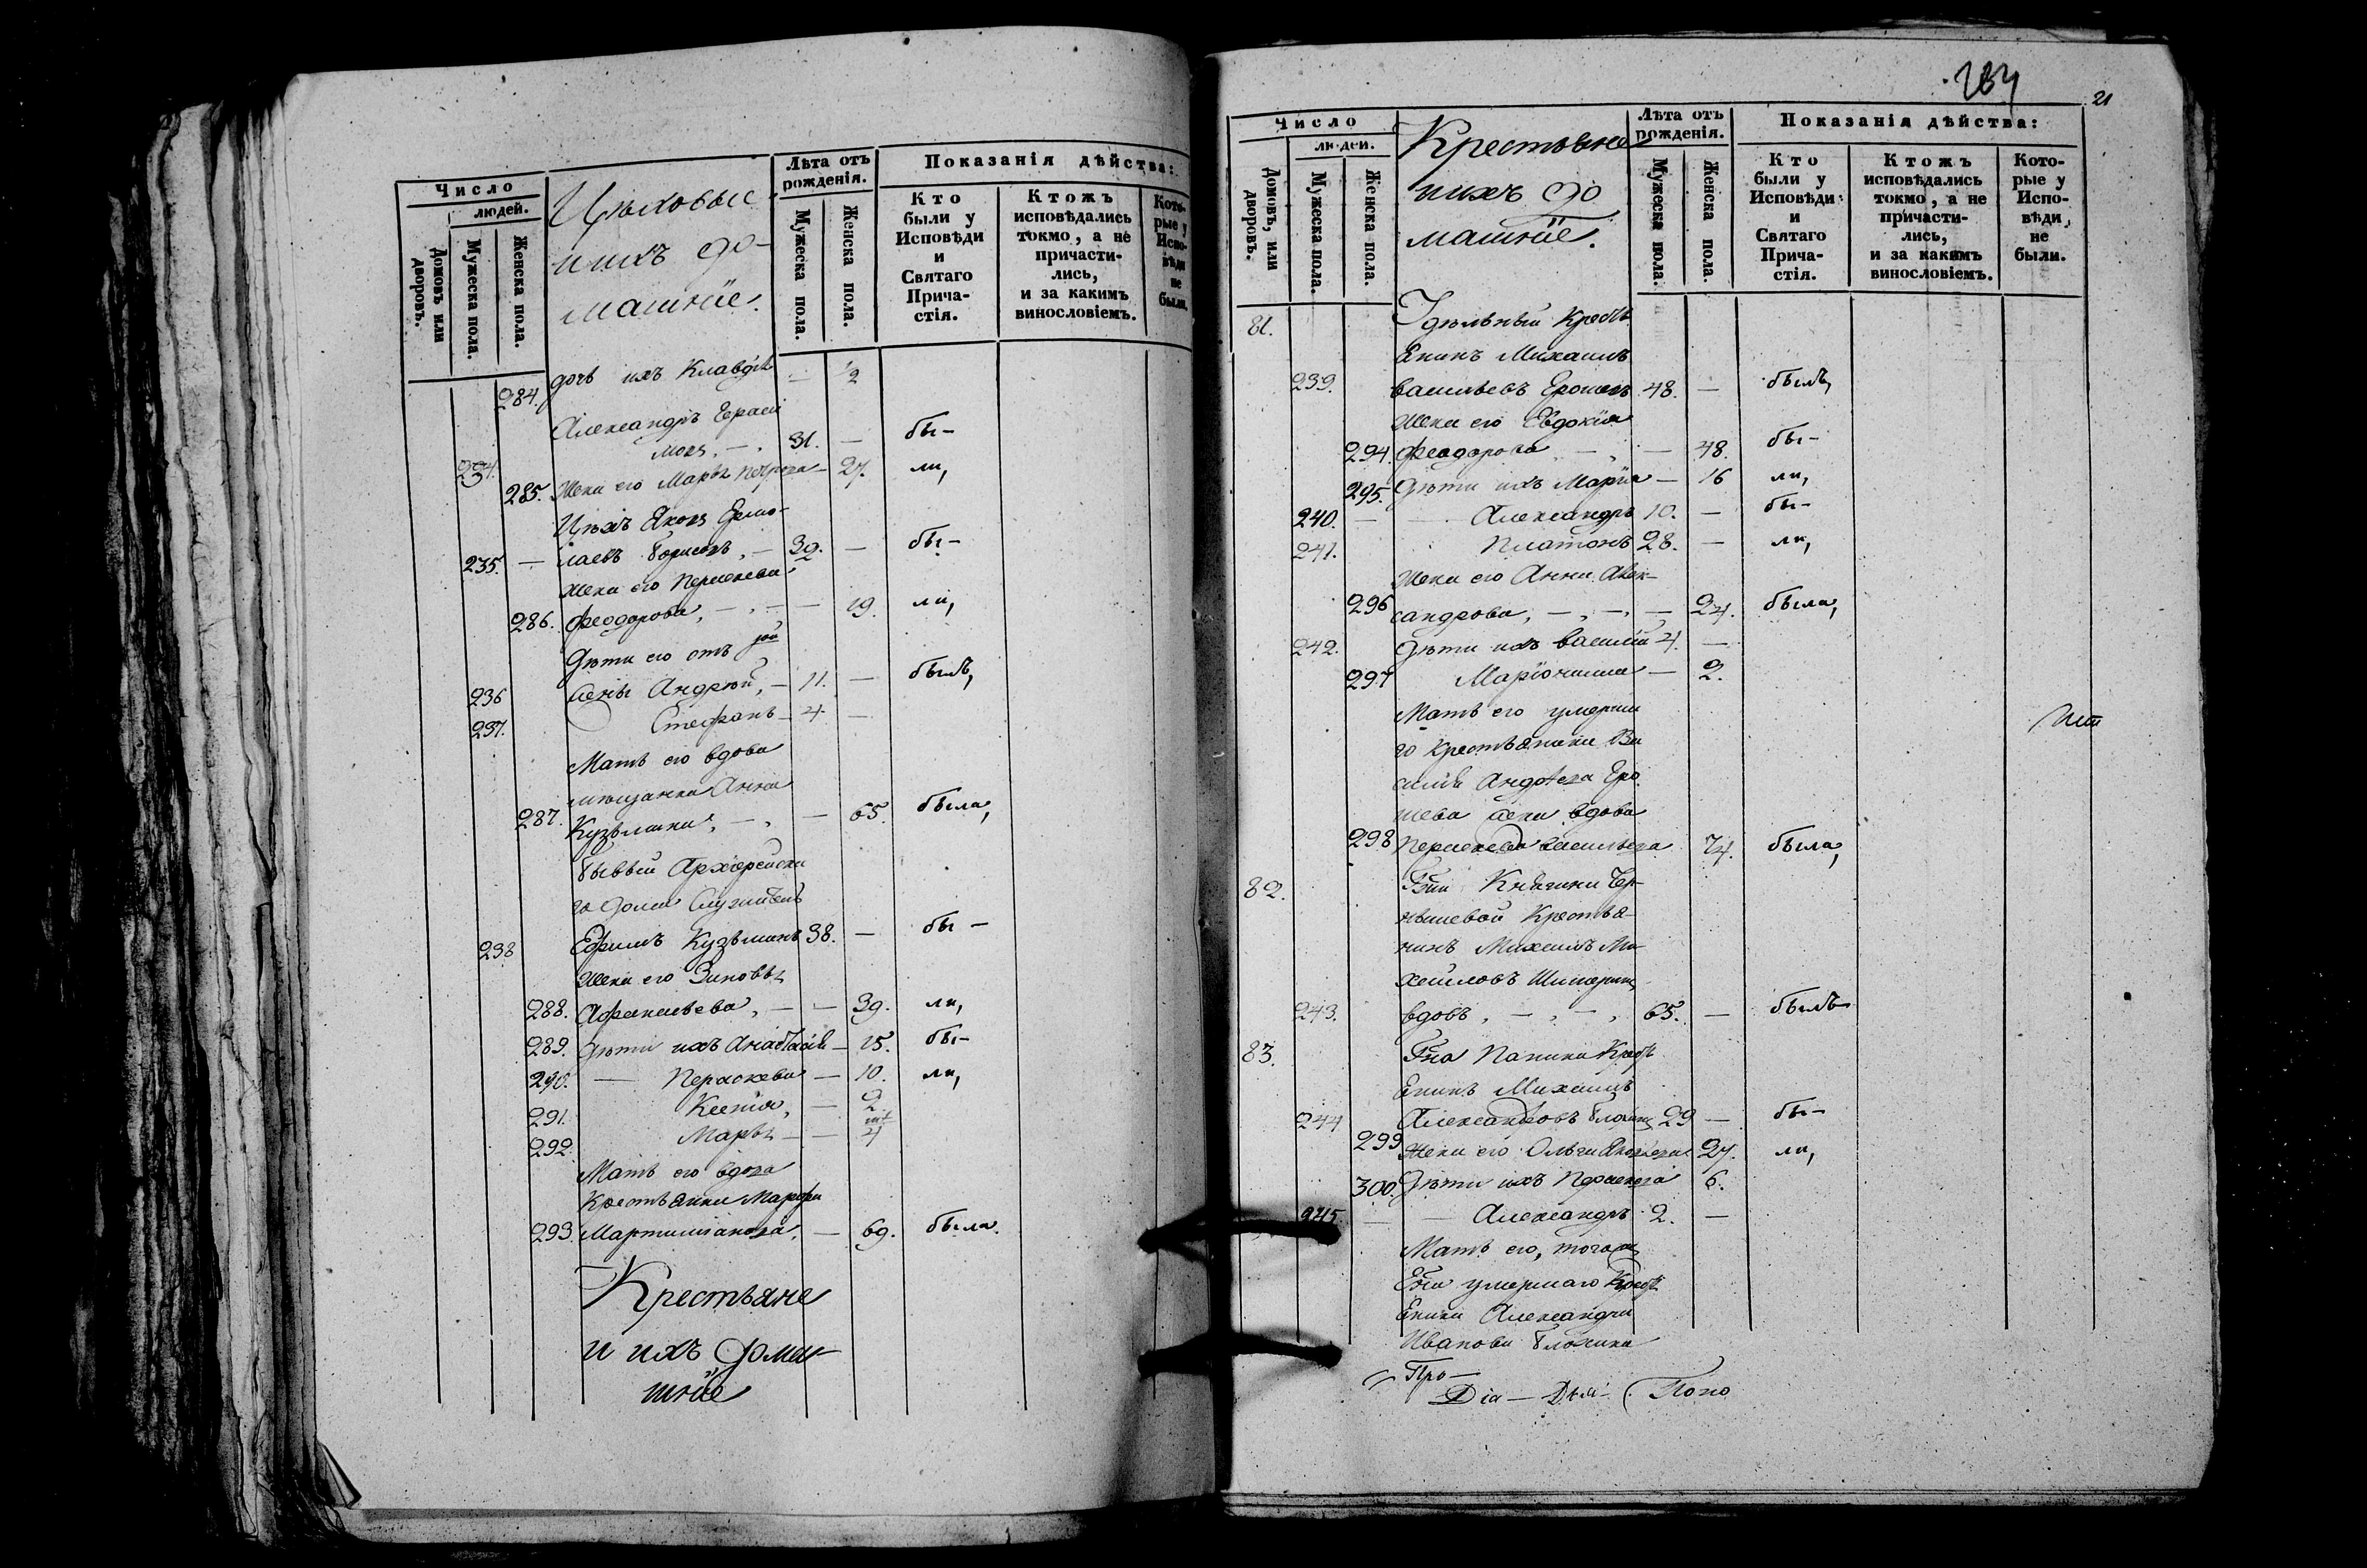 Число
людей.
Домовъ или дворовъ.
Мужеска пола.
Женска пола.
Цѣховые
и ихъ до-
машніе.
Лѣта отъ рожденія.
Мужеска пола.
Женска пола.
Показанія дѣйства:
Кто были у Исповѣди и Святаго Прича-стія.
Ктожъ исповѣдались токмо, а не причасти-лись, и за какимъ винословіемъ.
Кото-рые у Испо-вѣди не были.
284. дочь ихъ Клавдія — ½
Александръ Гераси
234. мовъ, — 31. — бы-
285. Жена его Марья Петрова — 27. ли,
Цѣхъ Яковъ Ермо-
235. — лаевъ Борисовъ, — 39. — бы-
жена его Параскева
286. Феодорова, — — 19. ли,
Дѣти его отъ 1ой
236 жены Андрей, — 11. — былъ,
237. Стефанъ — 4. —
Мать его вдова
мѣщанка Анна
287. Кузьмина, — — 65. была,
Бывшій Архіерейска
го дома Служитель
238 Ефимъ Кузьминъ 38. — бы —
Жена его Зиновья
288. Афанасьева, — — 39. ли,
289. Дѣти ихъ Анастасія — 15. бы-
290. — Параскева — 10. ли,
291. Ксенія, — 2
292. Марья — — 4
Мать его вдова
Крестьянка Марфа
293. Мартиміанова, — 69. была.
Крестьяне
и ихъ дома-
шніе
284
21
Число
людей.
Домовъ, или дворовъ.
Мужеска пола.
Женска пола.
Крестьяне
и ихъ до
машніе.
Лѣта отъ рожденія.
Мужеска пола.
Женска пола.
Показанія дѣйства:
Кто были у Исповѣди и Святаго Прича-стія.
Ктожъ исповѣдались токмо, а не причасти-лись, и за какимъ винословіемъ.
Кото-рые у Испо-вѣди, не были.
81. Удѣльный Кресть
янинъ Михаилъ
239. Васильевъ Ерошевъ 48. — былъ,
Жена его Евдокія
294. Феодорова — — 48. бы-
295. Дѣти ихъ Марія — 16 ли,
240. — Александръ 10. — бы-
241. Платонъ 28. — ли,
Жена его Анна Алек-
296 сандрова, — — — 24. была,
242. Дѣти ихъ Василій 4. —
297 Маріонилла — 2.
Мать его умерша
го Крестьянина Ва
силія Андреева Еро
шева жена вдова
298 Параскева Васильева 74. была,
82. Гжи Княгини Чер-
нышевой Крестья-
нинъ Михаилъ Ми-
хайловъ
243. вдовъ, — — 65. — былъ
83. Гна Панина Кресть
янинъ Михаилъ
244 Александровъ Блохинъ 29 — бы-
299 Жена его Ольга Яковлева 27. ли,
300. Дѣти ихъ Параскева 6.
245. — Александръ 2. —
Мать его, тогожъ
Гна умершаго Кресть
янина Александра
Иванова Блохина
Про —
Діа — Дья- Поно